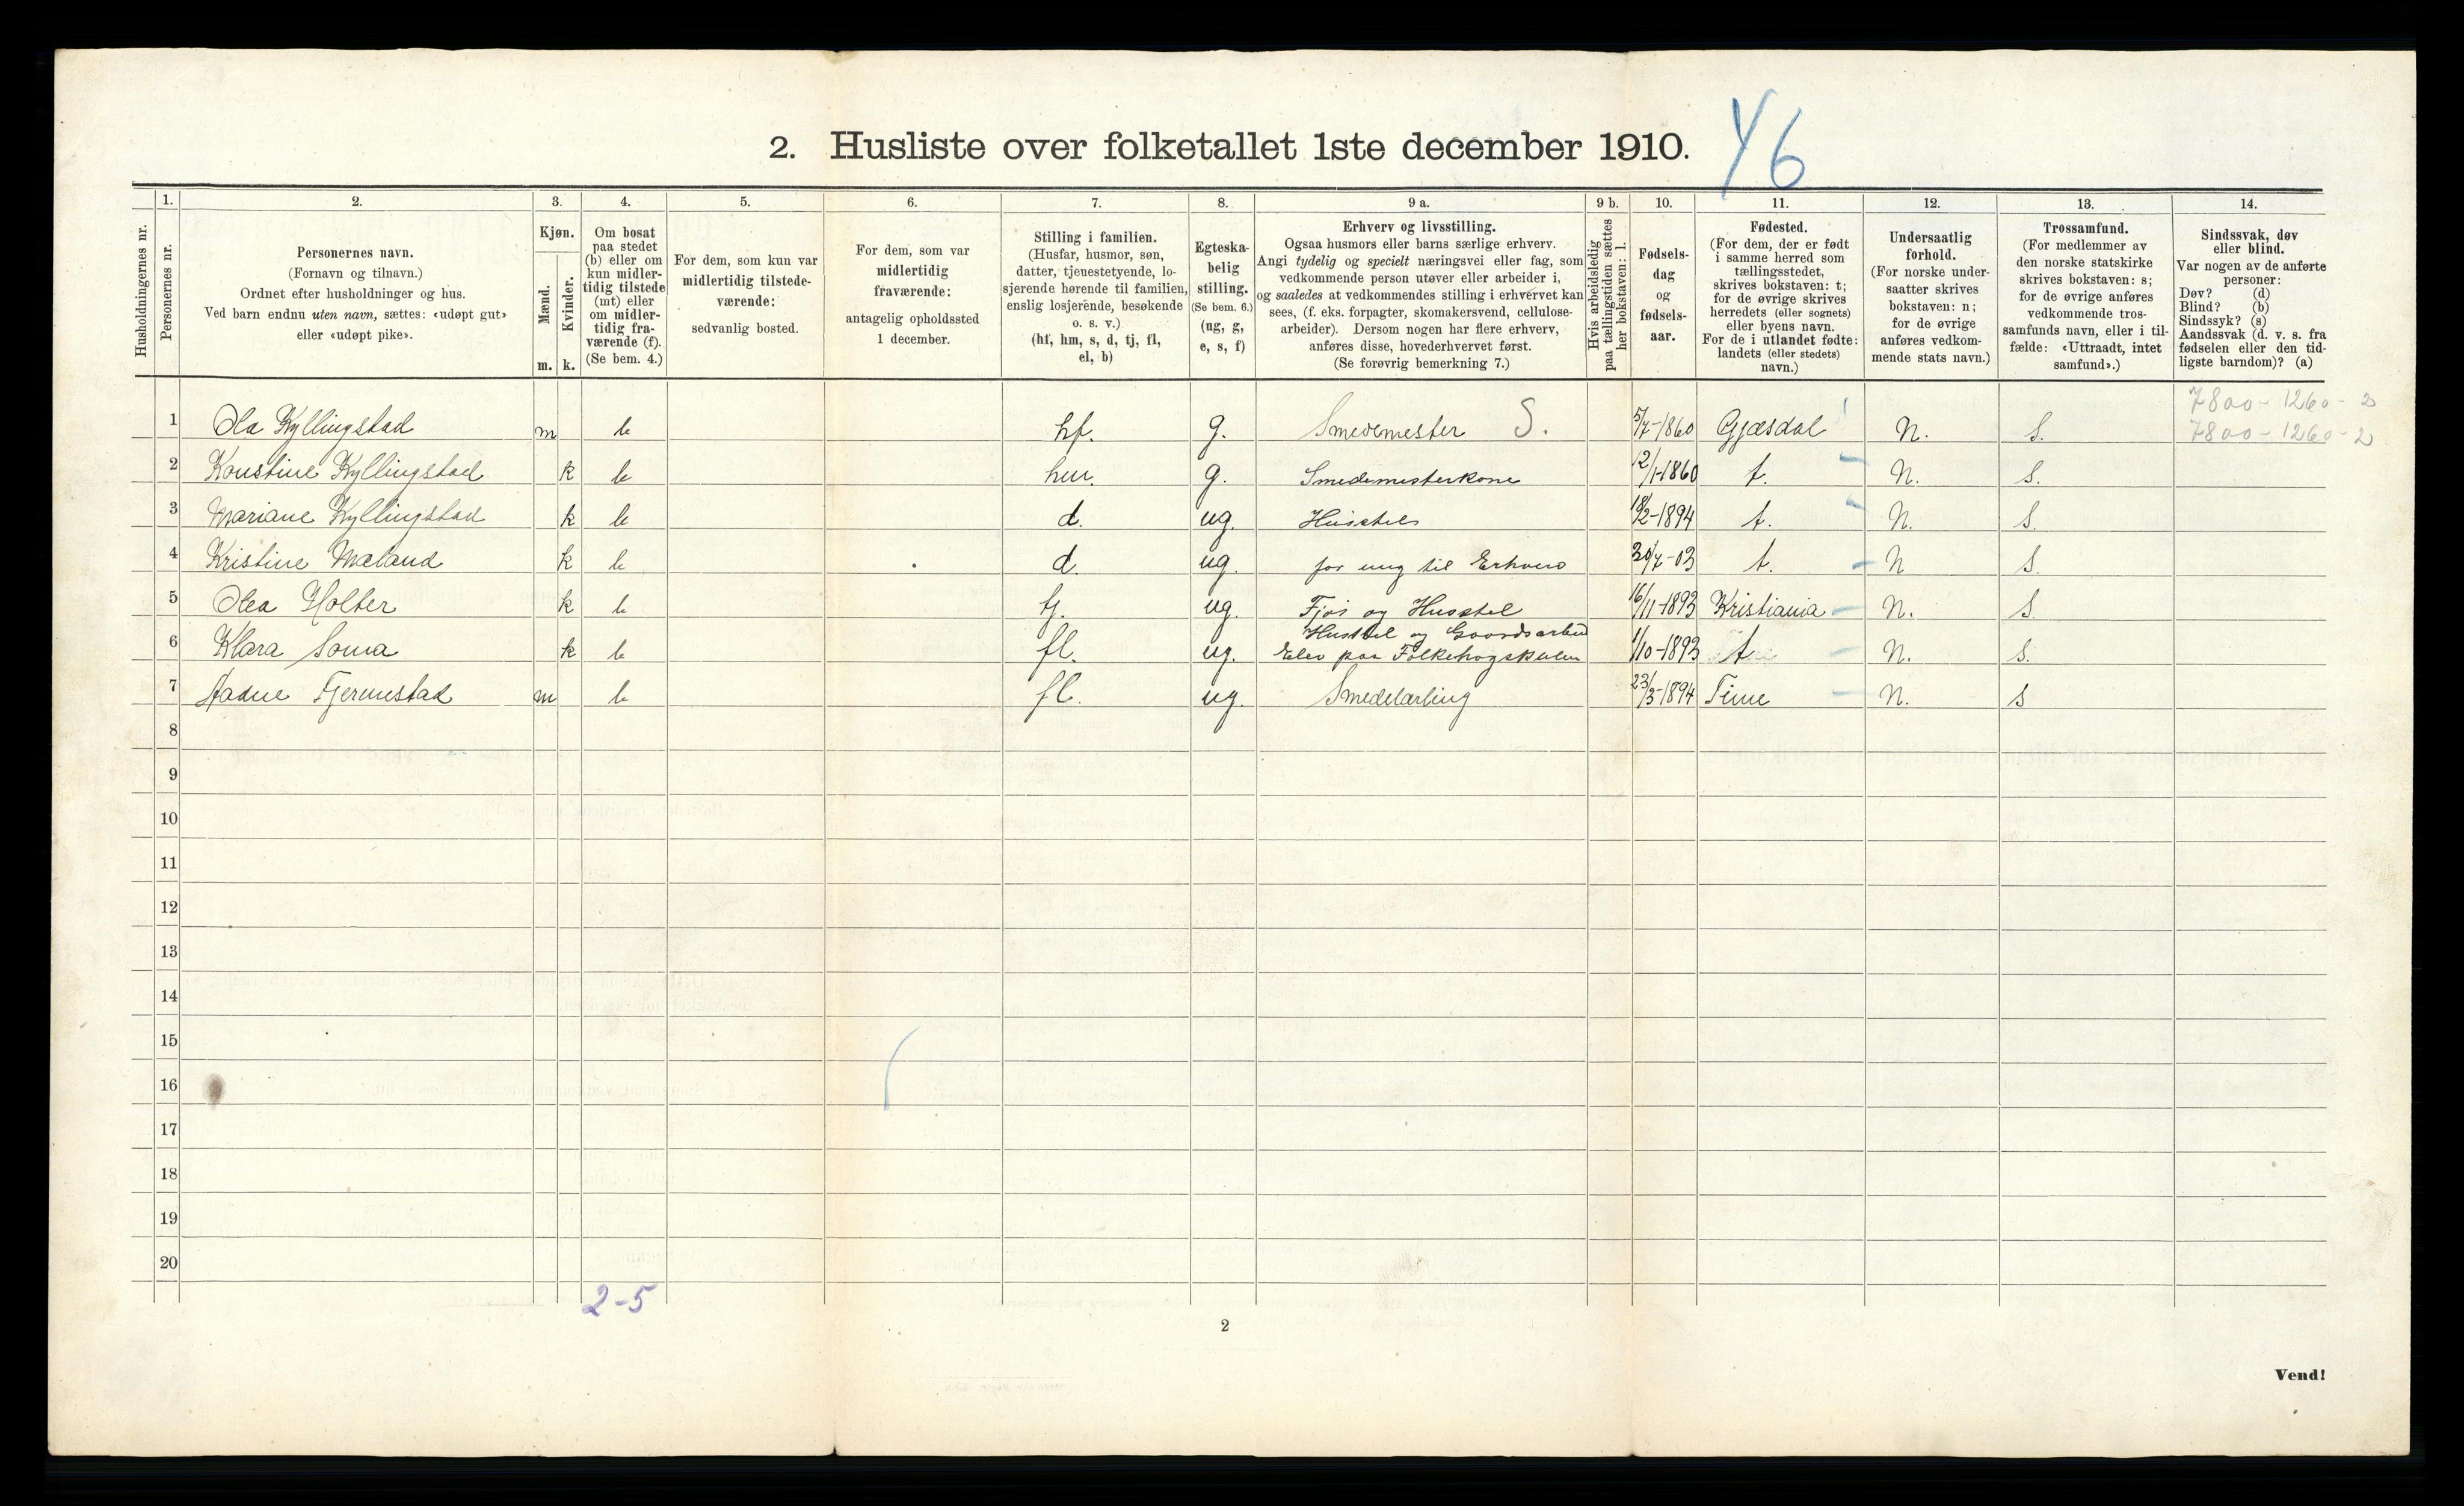 2. Husliste over folketallet 1ste december 1910. 46
1. 2. 3. 4. 5. 6. 7. 8. 9 a. 9 b. 10. 11. 12. 13. 14.
Husholdningernes nr.
Personernes nr.
Personernes navn.
(Fornavn og tilnavn.)
Ordnet efter husholdninger og hus.
Ved barn endnu uten navn, sættes: «udøpt gut»
eller «udøpt pike».
Kjøn.
Mænd.
Kvinder.
m. k.
Om bosat
paa stedet
(b) eller om
kun midler-
tidig tilstede
(mt) eller
om midler-
tidig fra-
værende (f).
(Se bem. 4.)
For dem, som kun var
midlertidig tilstede-
værende:
sedvanlig bosted.
For dem, som var
midlertidig
fraværende:
antagelig opholdssted
1 december.
Stilling i familien.
(Husfar, husmor, søn,
datter, tjenestetyende, lo-
sjerende hørende til familien,
enslig losjerende, besøkende
o. s. v.)
(hf, hm, s, d, tj, fl,
el, b)
Egteska-
belig
stilling.
(Se bem. 6.)
(ug, g,
e, s, f)
Erhverv og livsstilling.
Ogsaa husmors eller barns særlige erhverv.
Angi tydelig og specielt næringsvei eller fag, som
vedkommende person utøver eller arbeider i,
og saaledes at vedkommendes stilling i erhvervet kan
sees, (f. eks. forpagter, skomakersvend, cellulose-
arbeider). Dersom nogen har flere erhverv,
anføres disse, hovederhvervet først.
(Se forøvrig bemerkning 7.)
Hvis arbeidsledig
paa tællingstiden sættes
her bokstaven: l.
Fødsels-
dag
og
fødsels-
aar.
Fødested.
(For dem, der er født
i samme herred som
tællingsstedet,
skrives bokstaven: t;
for de øvrige skrives
herredets (eller sognets)
eller byens navn.
For de i utlandet fødte:
landets (eller stedets)
navn.)
Undersaatlig
forhold.
(For norske under-
saatter skrives
bokstaven: n;
for de øvrige
anføres vedkom-
mende stats navn.)
Trossamfund.
(For medlemmer av
den norske statskirke
skrives bokstaven: s;
for de øvrige anføres
vedkommende tros-
samfunds navn, eller i til-
fælde: «Uttraadt, intet
samfund».)
Sindssvak, døv
eller blind.
Var nogen av de anførte
personer:
Døv? (d)
Blind? (b)
Sindssyk? (s)
Aandssvak (d. v. s. fra
fødselen eller den tid-
ligste barndom)? (a)
7800-1260-2
1 Ola Kyllingstad m b hf. g. Smedemester S. 5/7-1860 Gjæsdal N. S. 7800-1260-2
2 Konstine Kyllingstad k b hm. g. Smedemesterkone 12/1-1860 t. N. S.
3 Mariane Kyllingstad k b d. ug. Husstel 18/2-1894 t. N. S.
4 Kristine Mæland k b d. ug. for ung til Erhverv 30/7-03 t. N S.
5 Olea Holter k b tj. ug. Fjøs og Husstel 16/11-1893 Kristiania N. S.
Husstel og Gaardsarbeid
6 Klara Soma k b fl. ug. Elev paa Folkehøgskulen 1/10-1893 t N. S.
7 Aadne Fjermestad m b fl. ug. Smedelærling 23/3-1894 Time N. S
8
9
10
11
12
13
14
15
16
17
18
19
20
2-5
2
Vend!